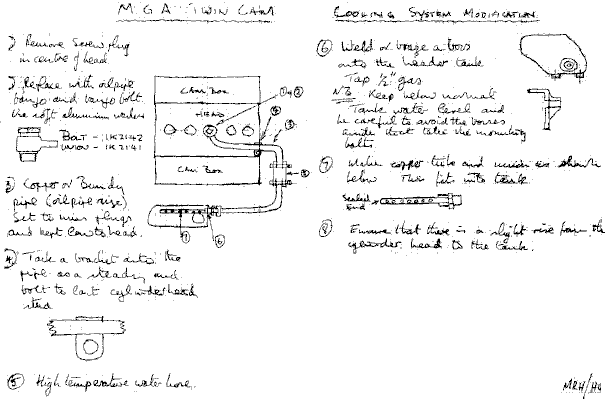 M G A TWIN CAM
COOLING SYSTEM MODIFICATION
1) Remove Screw plug
in centre of head
2) Replace with oil pipe
banjo and banjo bolt
the soft aluminium washers
BOLT - 1K2142
UNION - 1K2141
3) Copper or Bundy
pipe (oil pipe size).
Set to miss plugs
and kept low to head.
4) Tack a bracket onto the
pipe as a steady and
bolt to last cylinder head
stud
5) High temperature water hose.
CAM BOX
HEAD
CAM BOX
6) Weld or braze a boss
onto the header tank
Tap 1/2" gas
NB Keep below normal
Tank water level and
be careful to avoid the bosses
inside that take the mounting
bolts.
7) Make copper tube and union as shown
below This fits into tank
Sealed
End
8) Ensure that there is a slight rise from the
cylinder head to the tank.
MRH/